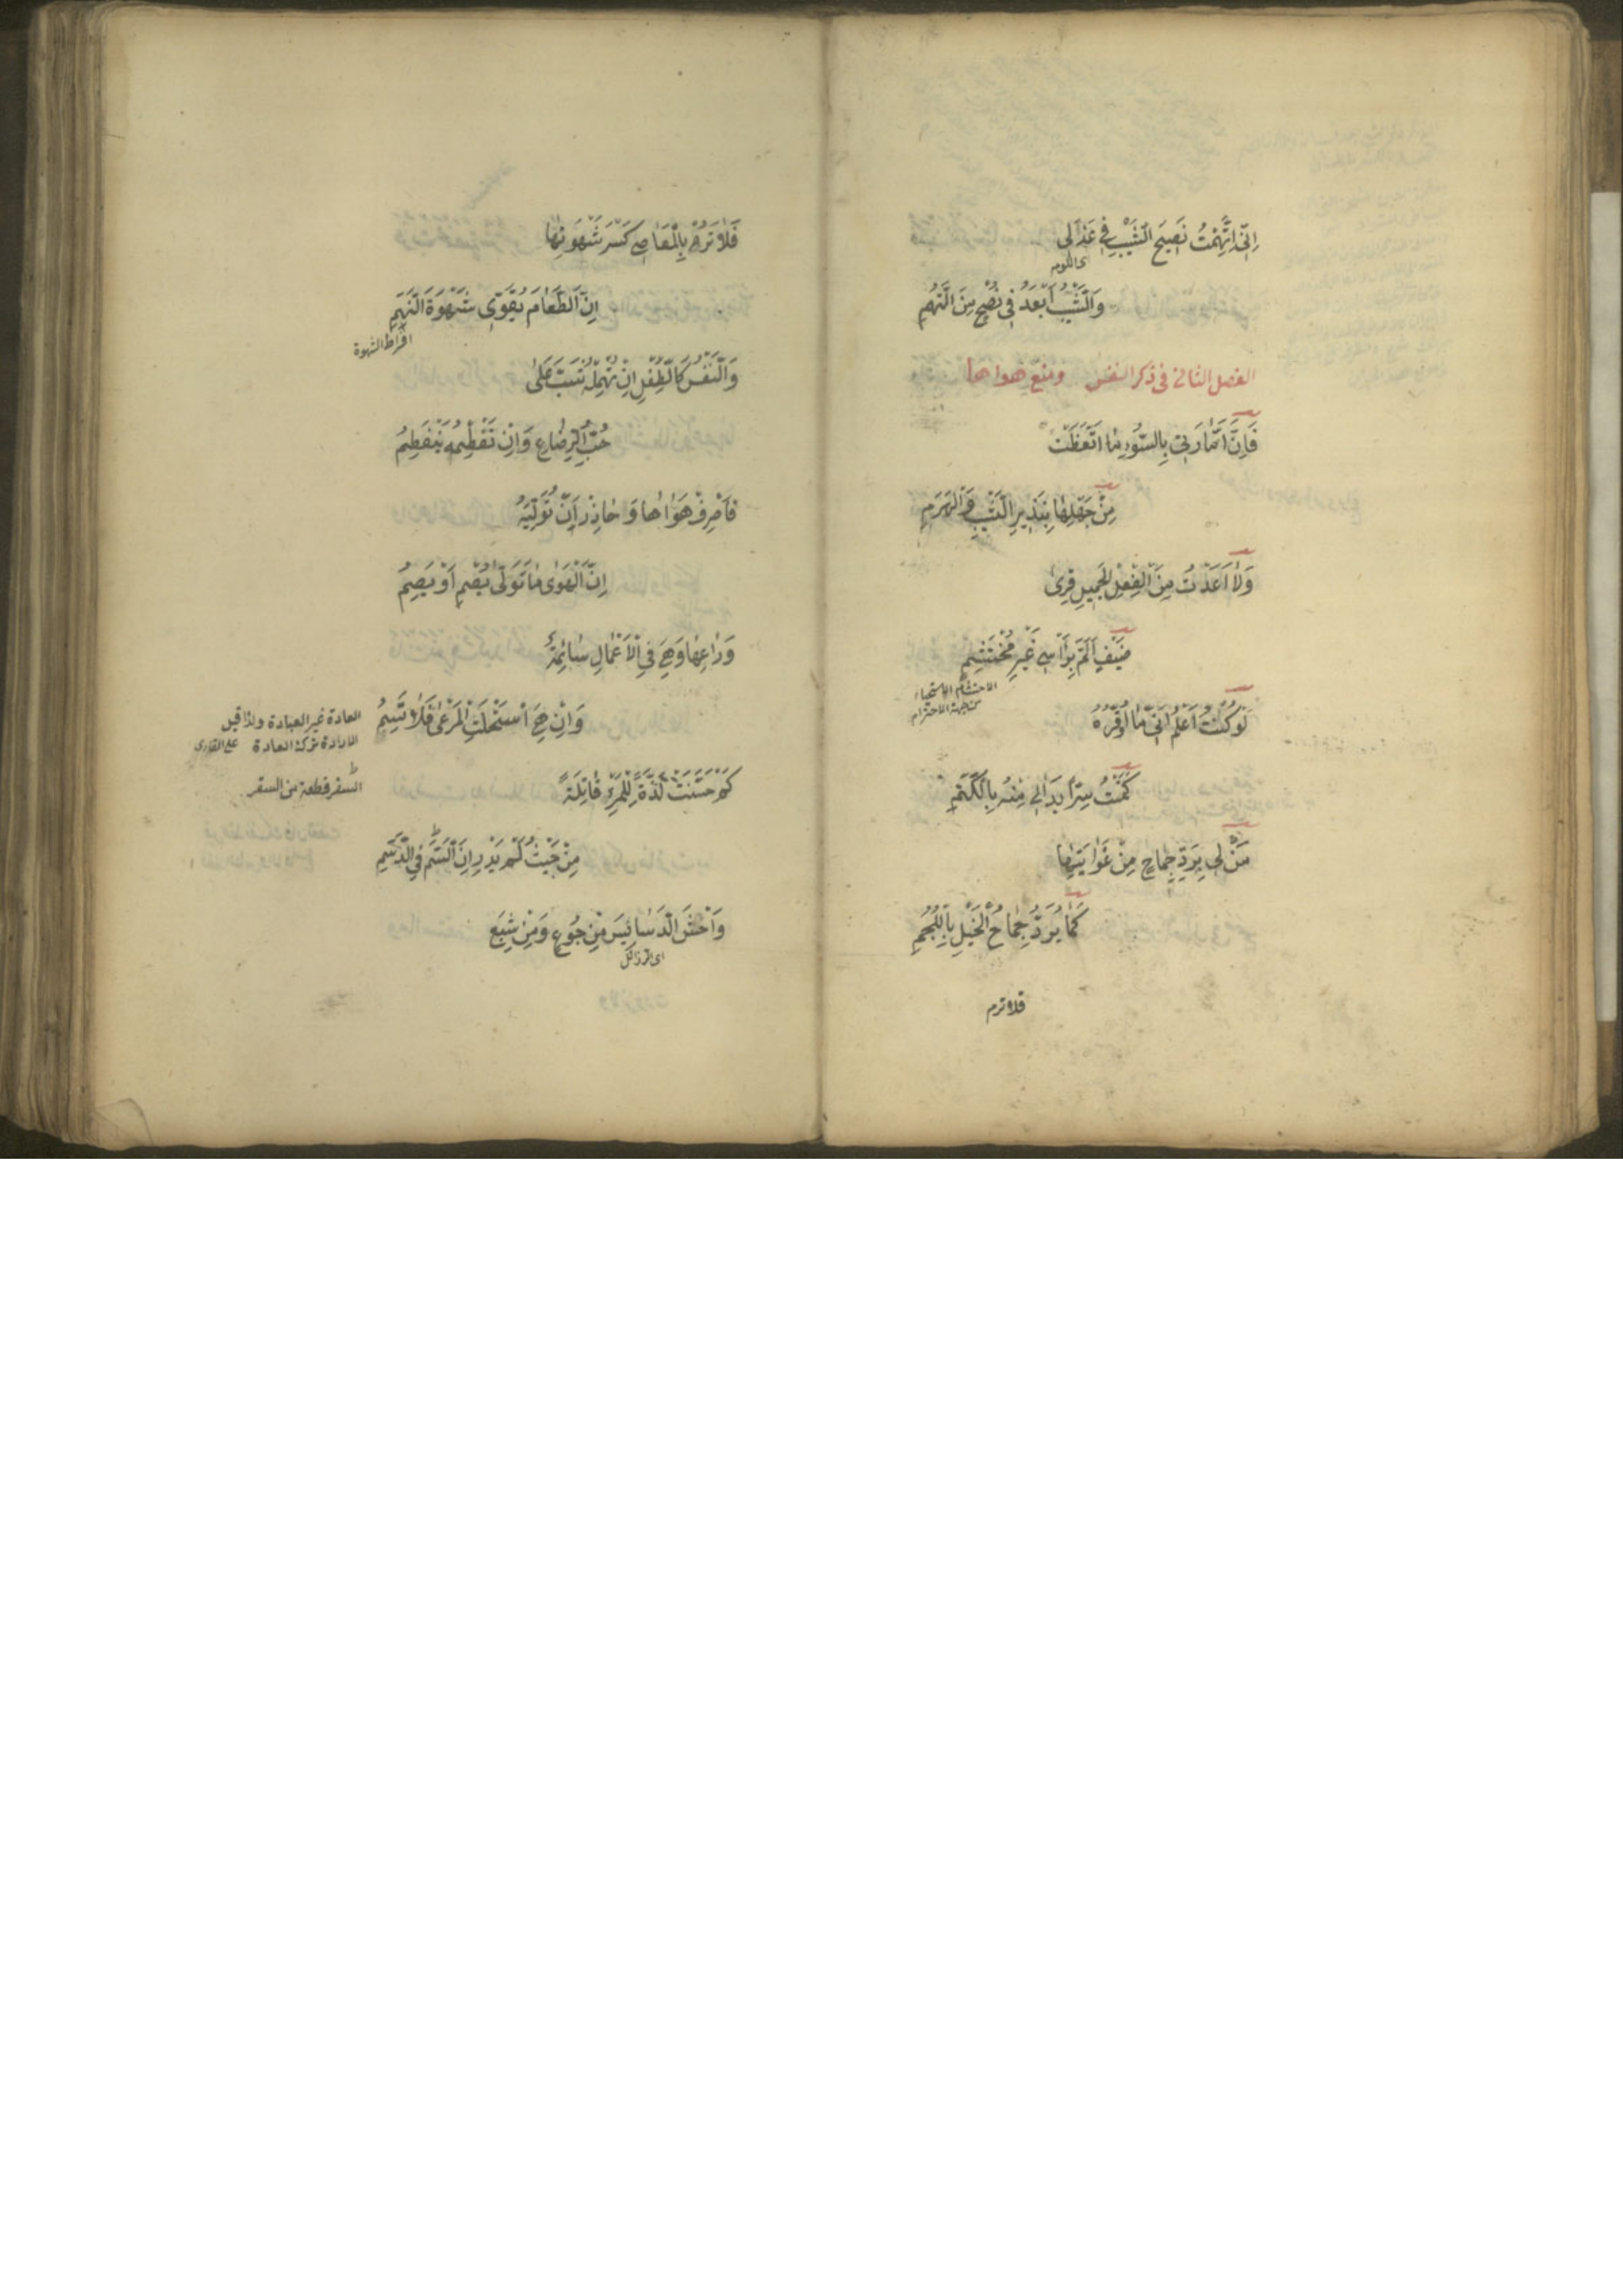 اِنِّى اتَّهَمْتُ نَصِيحَ الشَّيْبِ فِى عَذَلِى
اى اللوم
وَالشَّيْبُ اَبْعَدُ فِى نُصْحٍ مِنَ التُّهَمِ
الفصل الثانى فى ذكر النفس ومنع هواها
فَاِنَّ اَمَّارَتِى بِالسُّوءِ مَا اتَّعَظَتْ
مِنْ جَهْلِهَا بِنَذِيرِ الشَّيْبِ وَالْهَرَمِ
وَلَا اَعَدَّتْ مِنَ الْفِعْلِ الْجَمِيلِ قِرٰى
ضَيْفٍ اَلَمَّ بِرَأْسِى غَيْرِ مُحْتَشِمِ
الاحتشام الاستحياء
من جهة الاحترام
لَوْ كُنْتُ اَعْلَمُ اَنِّى مَا اُوَقِّرُهُ
كَتَمْتُ سِرًّا بَدَا لِى مِنْهُ بِالْكَتَمِ
مَنْ لِى بِرَدِّ جِمَاحٍ مِنْ غَوَايَتِهَا
كَمَا يُرَدُّ جِمَاحُ الْخَيْلِ بِاللُّجُمِ
فلا ترم
فَلَا تَرُمْ بِالْمَعَاصِى كَسْرَ شَهْوَتِهَا
اِنَّ الطَّعَامَ يُقَوِّى شَهْوَةَ النَّهِمِ
افراط الشهوة
وَالنَّفْسُ كَالطِّفْلِ اِنْ تُهْمِلْهُ شَبَّ عَلٰى
حُبِّ الرِّضَاعِ وَاِنْ تَفْطِمْهُ يَنْفَطِمُ
فَاصْرِفْ هَوَاهَا وَحَاذِرْ اَنْ تُوَلِّيَهُ
اِنَّ الْهَوٰى مَا تَوَلّٰى يُصْمِ اَوْ يَصِمُ
وَرَاعِهَا وَهِىَ فِى الْاَعْمَالِ سَائِمَةٌ
وَاِنْ هِىَ اسْتَحْلَتِ الْمَرْعٰى فَلَا تُسِمُ
العادة غير العبادة ولذا قيل
الارادة ترك العادة على القارى
كَمْ حَسَّنَتْ لَذَّةً لِلْمَرْءِ قَاتِلَةً
السفر قطعة من السقر
مِنْ حَيْثُ لَمْ يَدْرِ اَنَّ السَّمَّ فِى الدَّسَمِ
وَاخْشَ الدَّسَائِسَ مِنْ جُوعٍ وَمِنْ شِبَعٍ
اى الرذائل